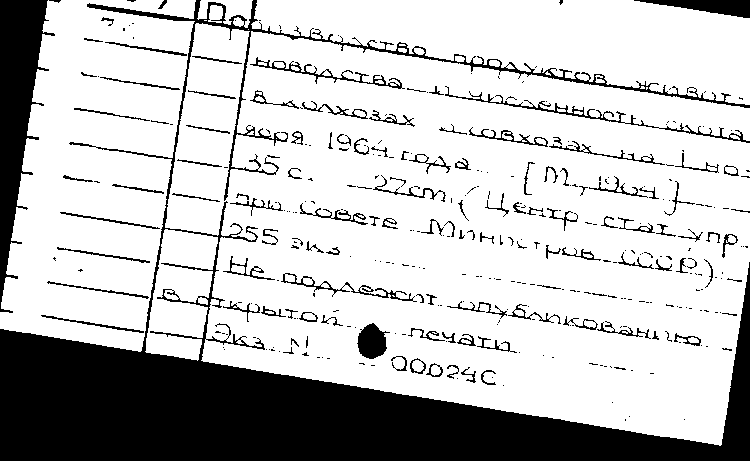 Производство продуктов живот-
новодства и численность скота
в колхозах и совхозах на 1 но-
ября 1964 года. [М., 1964]
35 с. 27см. (Центр. стат. упр.
при Совете Министров СССР).
255 экз.
Не подлежит опубликованию
в открытой печати
Экз. N 000240